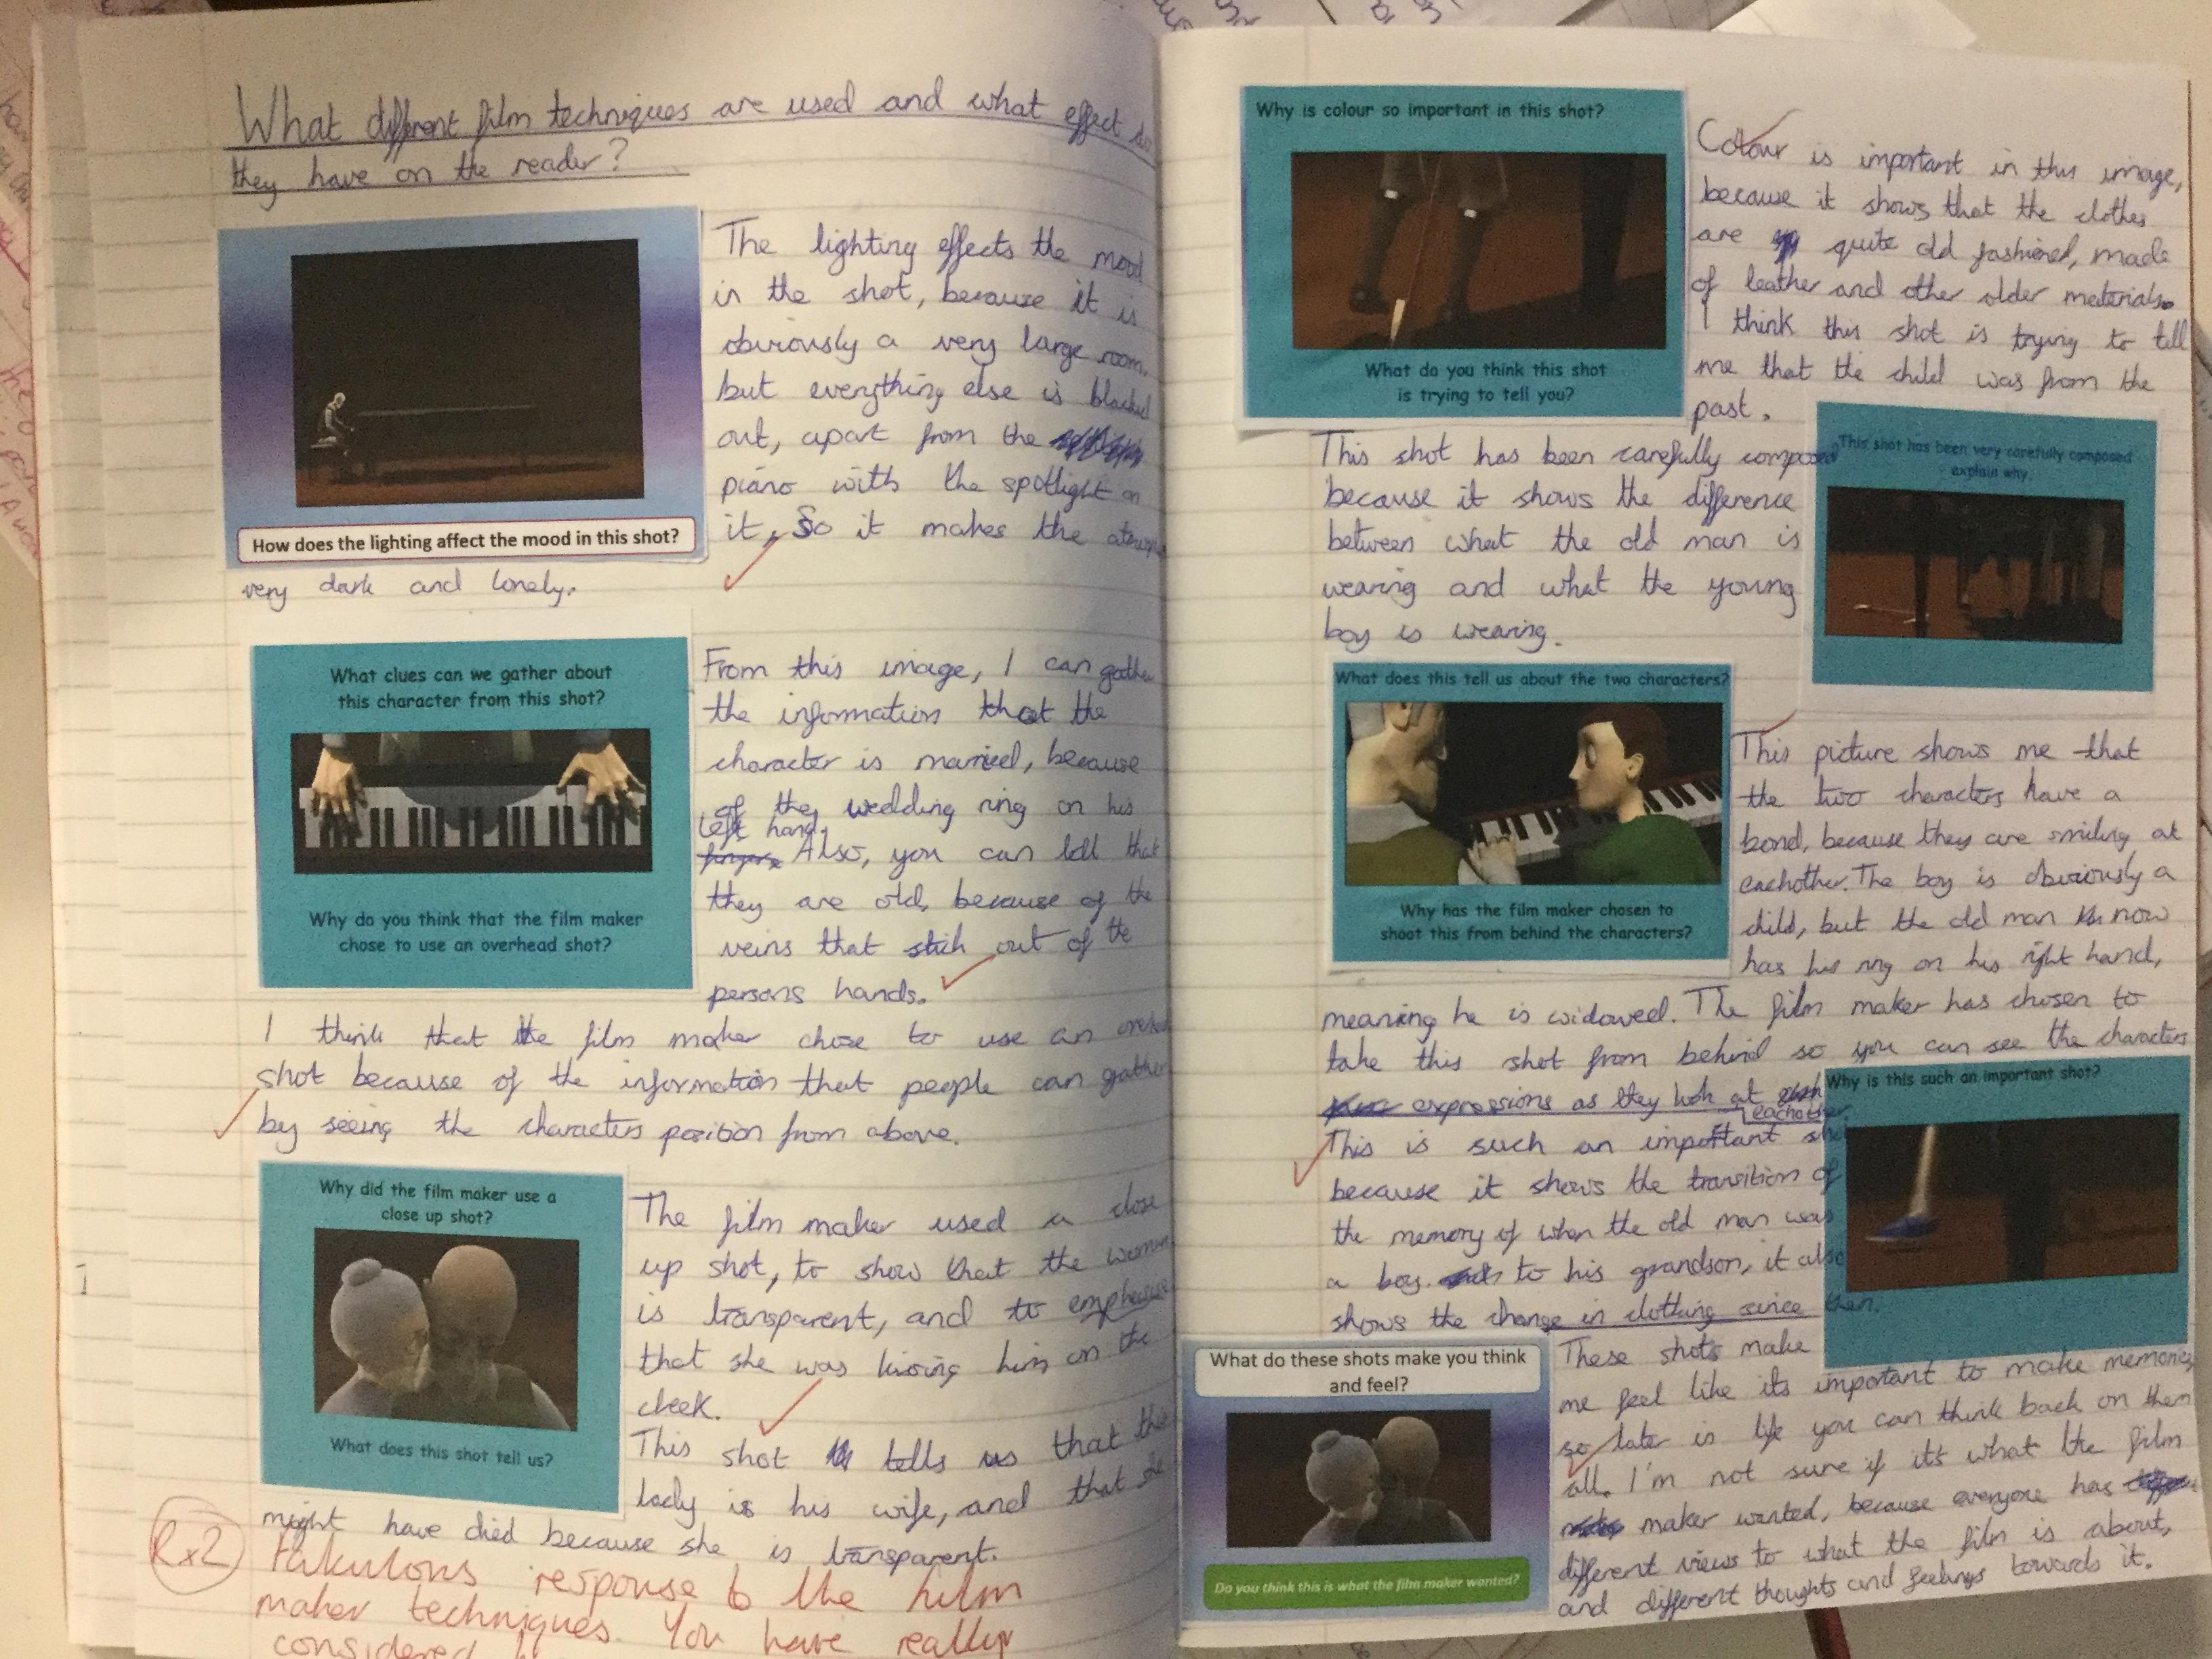 What different film techniques are used and what effect do
they have on the reader?
How does the lighting affect the mood in this shot?
The lighting effects the mood
in the shot, because it is
obviously a very large room,
but everything else is blacked
out, apart from the
piano with the spotlight on
it, So it makes the
very dark and lonely.
What clues can we gather about
this character from this shot?
Why do you think that the film maker
chose to use an overhead shot?
From this image, I can gather
the information that the
character is married, because
of the wedding ring on his
left hand.
fingers. Also, you can tell that
they are old, because of the
veins that stick out of the
persons hands.
I think that the film maker chose to use an
shot because of the information that people can gather
by seeing the characters position from above.
Why did the film maker use a
close up shot?
What does this shot tell us?
The film maker used a close
up shot, to show that the woman
is transparent, and to emphasise
that she was kissing him on the
cheek.
This shot tells us that this
lady is his wife, and that she
might have died because she is transparent.
Rx2
Fabulous response to the film
maker techniques. You have really
considered
Why is colour so important in this shot?
What do you think this shot
is trying to tell you?
Colour is important in this image,
because it shows that the clothes
are quite old fashioned, made
of leather and other older materials.
I think this shot is trying to tell
me that the child was from the
past.
This shot has been very carefully composed
explain why.
This shot has been carefully composed
because it shows the difference
between what the old man is
wearing and what the young
boy is wearing.
What does this tell us about the two characters?
Why has the film maker chosen to
shoot this from behind the characters?
This picture shows me that
the two characters have a
bond, because they are smiling at
eachother. The boy is obviously a
child, but the old man now
has his ring on his right hand,
meaning he is widowed. The film maker has chosen to
take this shot from behind so you can see the characters
expressions as they look at
eachother.
Why is this such an important shot?
This is such an important
because it shows the transition of
the memory of when the old man was
a boy. to his grandson, it also
shows the change in clothing since then.
What do these shots make you think
and feel?
Do you think this is what the film maker wanted?
These shots make
me feel like its important to make memories,
so later in life you can think back on them
all. I'm not sure if it's what the film
maker wanted, because everyone has
different views to what the film is about,
and different thoughts and feelings towards it.